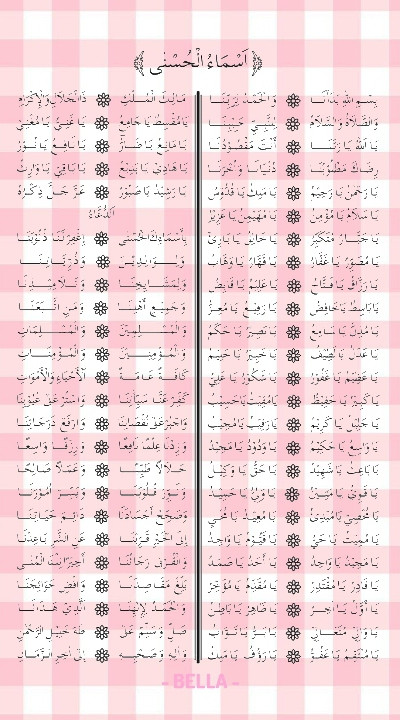 اَسْمَاءُ الْحُسْنٰى
بِسْمِ اللهِ بَدَأْنَا وَالْحَمْدُ لِرَبِّنَا
وَالصَّلَاةُ وَالسَّلَامُ لِلنَّبِيِّ حَبِيْبِنَا
يَا اَللهُ يَا رَبَّنَا أَنْتَ مَقْصُوْدُنَا
رِضَاكَ مَطْلُوْبُنَا دُنْيَانَا وَأُخْرَنَا
يَا رَحْمٰنُ يَا رَحِيْمُ يَا مَلِكُ يَا قُدُّوْسُ
يَا سَلَامُ يَا مُؤْمِنُ يَا مُهَيْمِنُ يَا عَزِيْزُ
يَا جَبَّارُ مُتَكَبِّرُ يَا خَالِقُ يَا بَارِئُ
يَا مُصَوِّرُ يَا غَفَّارُ يَا قَهَّارُ يَا وَهَّابُ
يَا رَزَّاقُ يَا فَتَّاحُ يَا عَلِيْمُ يَا قَابِضُ
يَا بَاسِطُ يَا خَافِضُ يَا رَفِيْعُ يَا مُعِزُّ
يَا مُذِلُّ يَا سَامِعُ يَا بَصِيْرُ يَا حَكَمُ
يَا عَدْلُ يَا لَطِيْفُ يَا خَبِيْرُ يَا حَلِيْمُ
يَا عَظِيْمُ يَا غَفُوْرُ يَا شَكُوْرُ يَا عَلِيُّ
يَا كَبِيْرُ يَا حَفِيْظُ يَا مُقِيْتُ يَا حَسِيْبُ
يَا جَلِيْلُ يَا كَرِيْمُ يَا رَقِيْبُ يَا مُجِيْبُ
يَا وَاسِعُ يَا حَكِيْمُ يَا وَدُوْدُ يَا مَجِيْدُ
يَا بَاعِثُ يَا شَهِيْدُ يَا حَقُّ يَا وَكِيْلُ
يَا قَوِيُّ يَا مَتِيْنُ يَا وَلِيُّ يَا حَمِيْدُ
يَا مُحْصِيْ يَا مُبْدِئُ يَا مُعِيْدُ يَا مُحْيِ
يَا مُمِيْتُ يَا حَيُّ يَا قَيُّوْمُ يَا وَاجِدُ
يَا مَجِيْدُ يَا وَاحِدُ يَا أَحَدُ يَا صَمَدُ
يَا قَادِرُ يَا مُقْتَدِرُ يَا مُقَدِّمُ يَا مُؤَخِّرُ
يَا أَوَّلُ يَا اٰخِرُ يَا ظَاهِرُ يَا بَاطِنُ
يَا وَالِيْ مُتَعَالِيْ يَا بَرُّ يَا تَوَّابُ
يَا مُنْتَقِمُ يَا عَفُوُّ يَا رَؤُوْفُ يَا مَلِكُ
مَالِكَ الْمُلْكِ ذَا الْجَلَالِ وَالْإِكْرَامِ
يَا مُقْسِطُ يَا جَامِعُ يَا غَنِيُّ يَا مُغْنِيُ
يَا مَانِعُ يَا ضَارُّ يَا نَافِعُ يَا نُوْرُ
يَا هَادِيْ يَا بَدِيْعُ يَا بَاقِيْ يَا وَارِثُ
يَا رَشِيْدُ يَا صَبُوْرُ عَزَّ جَلَّ ذِكْرُهُ
اَلدُّعَاءُ
بِأَسْمَائِكَ الْحُسْنٰى اِغْفِرْ لَنَا ذُنُوْبَنَا
وَلِوَالِدِيْنَا وَذُرِّيَّاتِنَا
وَلِمَشَايِخِنَا وَتَلَامِيْذِنَا
وَجَمِيْعِ أَهْلِيْنَا وَمَنِ اتَّبَعَنَا
وَالْمُسْلِمِيْنَ وَالْمُسْلِمَاتِ
وَالْمُؤْمِنِيْنَ وَالْمُؤْمِنَاتِ
كَافَّةً عَامَّةً اَلْأَحْيَاءِ وَالْأَمْوَاتِ
كَفِّرْ عَنَّا سَيِّئَاتِنَا وَاسْتُرْ عَلٰى عُيُوْبِنَا
وَاجْبُرْ عَلٰى نُقْصَانِنَا وَارْفَعْ دَرَجَاتِنَا
وَزِدْنَا عِلْمًا نَافِعًا وَرِزْقًا وَاسِعًا
حَلَالًا طَيِّبًا وَعَمَلًا صَالِحًا
وَنَوِّرْ قُلُوْبَنَا وَيَسِّرْ أُمُوْرَنَا
وَصَحِّحْ أَجْسَادَنَا دَائِمَ حَيَاتِنَا
إِلَى الْخَيْرِ قَرِّبْنَا عَنِ الشَّرِّ بَاعِدْنَا
وَالْقُرْبٰى رَجَائُنَا أَخِيْرًا نِلْنَا الْمُنٰى
بَلِّغْ مَقَاصِدَنَا وَاقْضِ حَوَائِجَنَا
وَالْحَمْدُ لِإِلٰهِنَا اَلَّذِيْ هَدَانَا
صَلِّ وَسَلِّمْ عَلٰى طٰهَ خَلِيْلِ الرَّحْمٰنِ
وَاٰلِهِ وَصَحْبِهِ إِلٰى اٰخِرِ الزَّمَانِ
- BELLA -